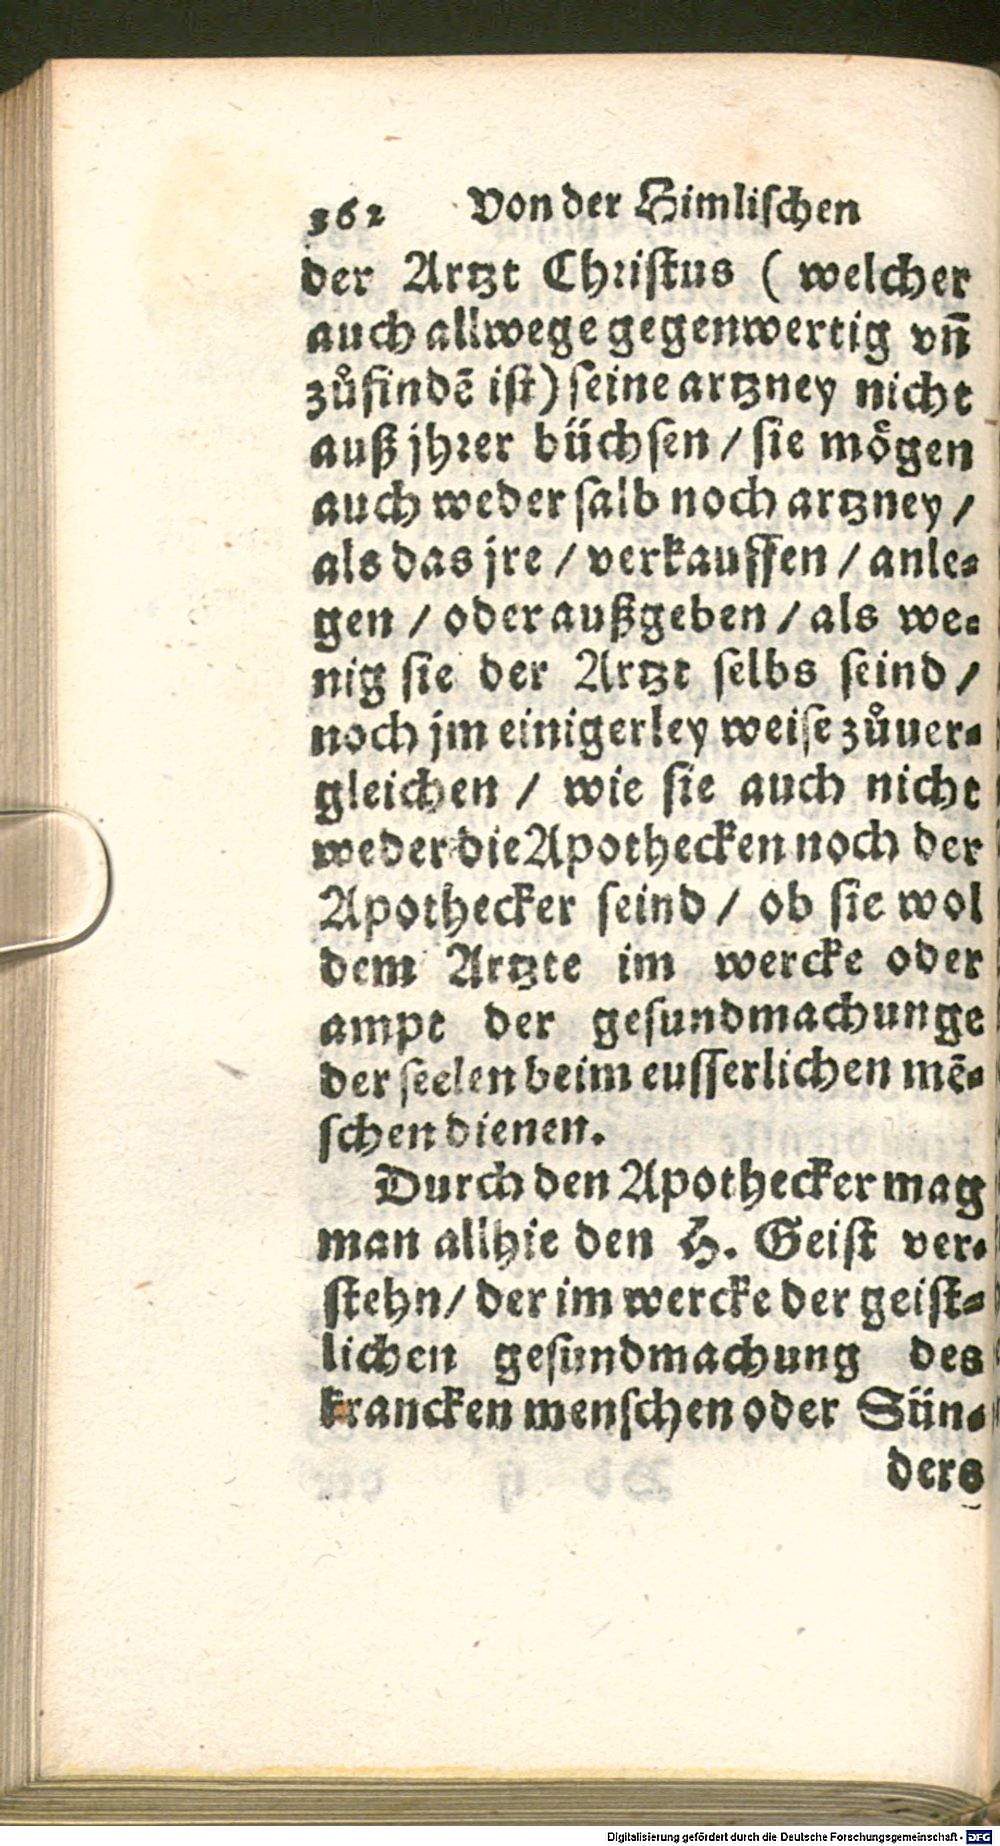 362 Von der Himlischen
der Artzt Christus ( welcher
auch allwege gegenwertig vn̄
zůfindē ist) seine artzney nicht
auß jhrer büchsen / sie mögen
auch weder salb noch artzney /
als das jre / verkauffen / anle⸗
gen / oder außgeben / als we⸗
nig sie der Artzt selbs seind /
noch jm einigerley weise zůuer⸗
gleichen / wie sie auch nicht
weder die Apothecken noch der
Apothecker seind / ob sie wol
dem Artzte im wercke oder
ampt der gesundmachunge
der seelen beim eusserlichen mē⸗
schen dienen.
Durch den Apothecker mag
man allhie den H. Geist ver⸗
stehn / der im wercke der geist⸗
lichen gesundmachung des
krancken menschen oder Sün⸗
ders
Digitalisierung gefördert durch die Deutsche Forschungsgemeinschaft - DFG